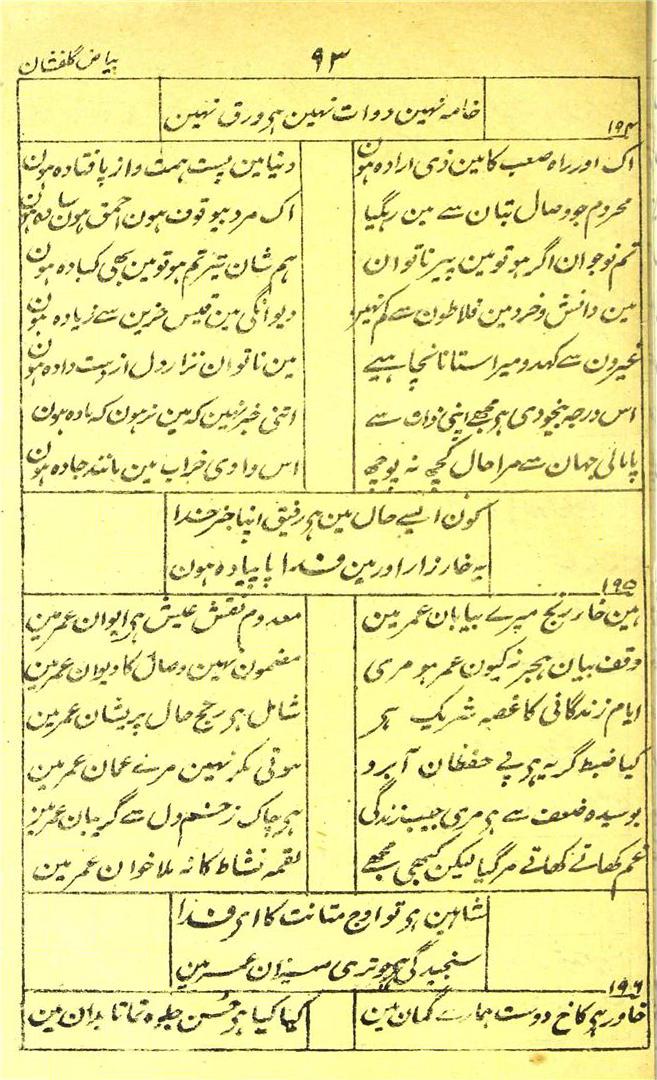 ۹۳
بیاض گلفشان
خامہ نہین دوات نہین ہی ورق نہین
۱۹۴
اک اور راہ صعب کا مین ذی ارادہ ہون
دنیا مین پست ہمت و از پا فتادہ ہون
محروم جو وصال بتان سے مین رہگیا
اک مرد بیوقوف ہون احمق ہون سادہ ہون
تم نوجوان اگر ہو تو مین پیر ناتوان
ہم شان تیر تم ہو تو مین بھی کبادہ ہون
مین دانش و خرد مین فلاطون سے کم نہین
دیوانگی مین قیس حزین سے زیادہ ہون
غیرون سے کہدو میرا ستانا نچاہیے
مین ناتوان نزار دل از دست دادہ ہون
اس درجہ بیخودی ہی مجھے اپنی ذات سے
اتنی خبر نہین کہ مین نر ہون کہ مادہ ہون
پامالی جہان سے مرا حال کچھ نہ پوچھ
اس وادی خراب مین مانند جادہ ہون
کون ایسے حال مین ہی رفیق اپنا جز خدا
یہ خار زار اور مین فدا پا پیادہ ہون
۱۹۵
ہین خار رنج میرے بیابان عمر مین
معدوم نقش عیش ہی ایوان عمر مین
وقف بیان ہجر نہ کیون عمر ہو مری
مضمون نہین وصال کا دیوان عمر مین
ایام زندگانی کا غصہ شریک ہی
شامل ہی رنج حال پریشان عمر مین
کیا ضبط گریہ ہی پے حفظان آبرو
موتی مگر نہین مرے عمان عمر مین
بوسیدہ ضعف سے ہی مری جیب زندگی
ہی چاک زخم دل سے گریبان عمر مین
غم کھاتے کھاتے مر گیا لیکن کبھی مجھے
لقمہ نشاط کا نہ ملا خوان عمر مین
شاہین ہی تو اوج متانت کا ای فدا
سنجیدگی ہی جو تری میزان عمر مین
۱۹۶
خاور ہی کاخ دوست ہمارے گمان مین
کیا کیا ہی حسن جلوہ نما تابدان مین